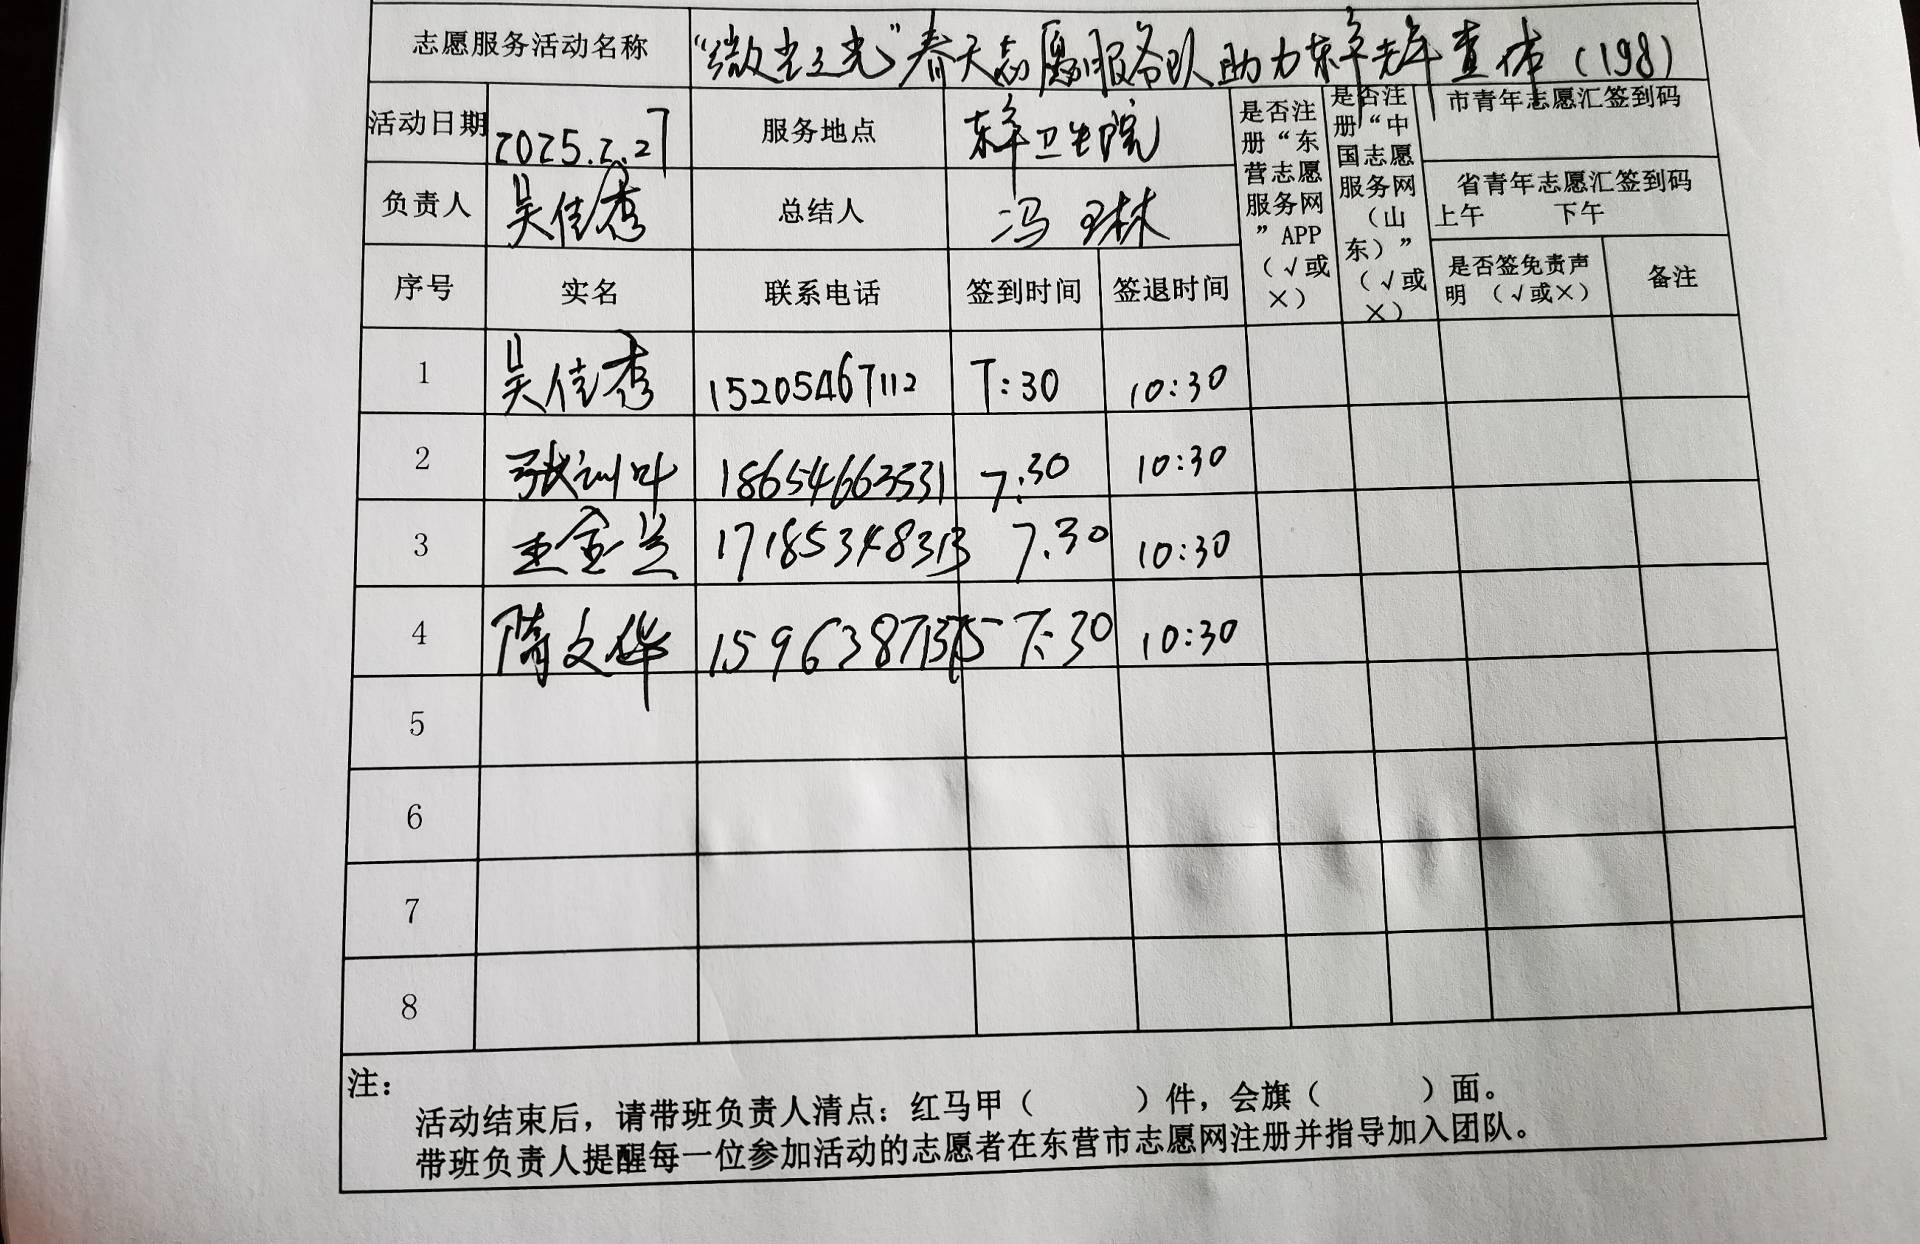 志愿服务活动名称 “微尘之光”春天志愿服务队助力东辛老年查体（198）
活动日期 2025.2.27 服务地点 东辛卫生院 是否注册“东营志愿服务网”APP（√或×） 是否注册“中国志愿服务网（山东）”（√或×） 市青年志愿汇签到码
省青年志愿汇签到码
上午 下午
负责人 吴佳秀 总结人 冯琳
序号 实名 联系电话 签到时间 签退时间 是否签免责声明（√或×） 备注
1 吴佳秀 15205467112 7:30 10:30
2 张训叶 18654663531 7:30 10:30
3 王金兰 17185348313 7.30 10:30
4 隋文华 15963871375 7:30 10:30
5
6
7
8
注：
活动结束后，请带班负责人清点：红马甲（ ）件，会旗（ ）面。
带班负责人提醒每一位参加活动的志愿者在东营市志愿网注册并指导加入团队。